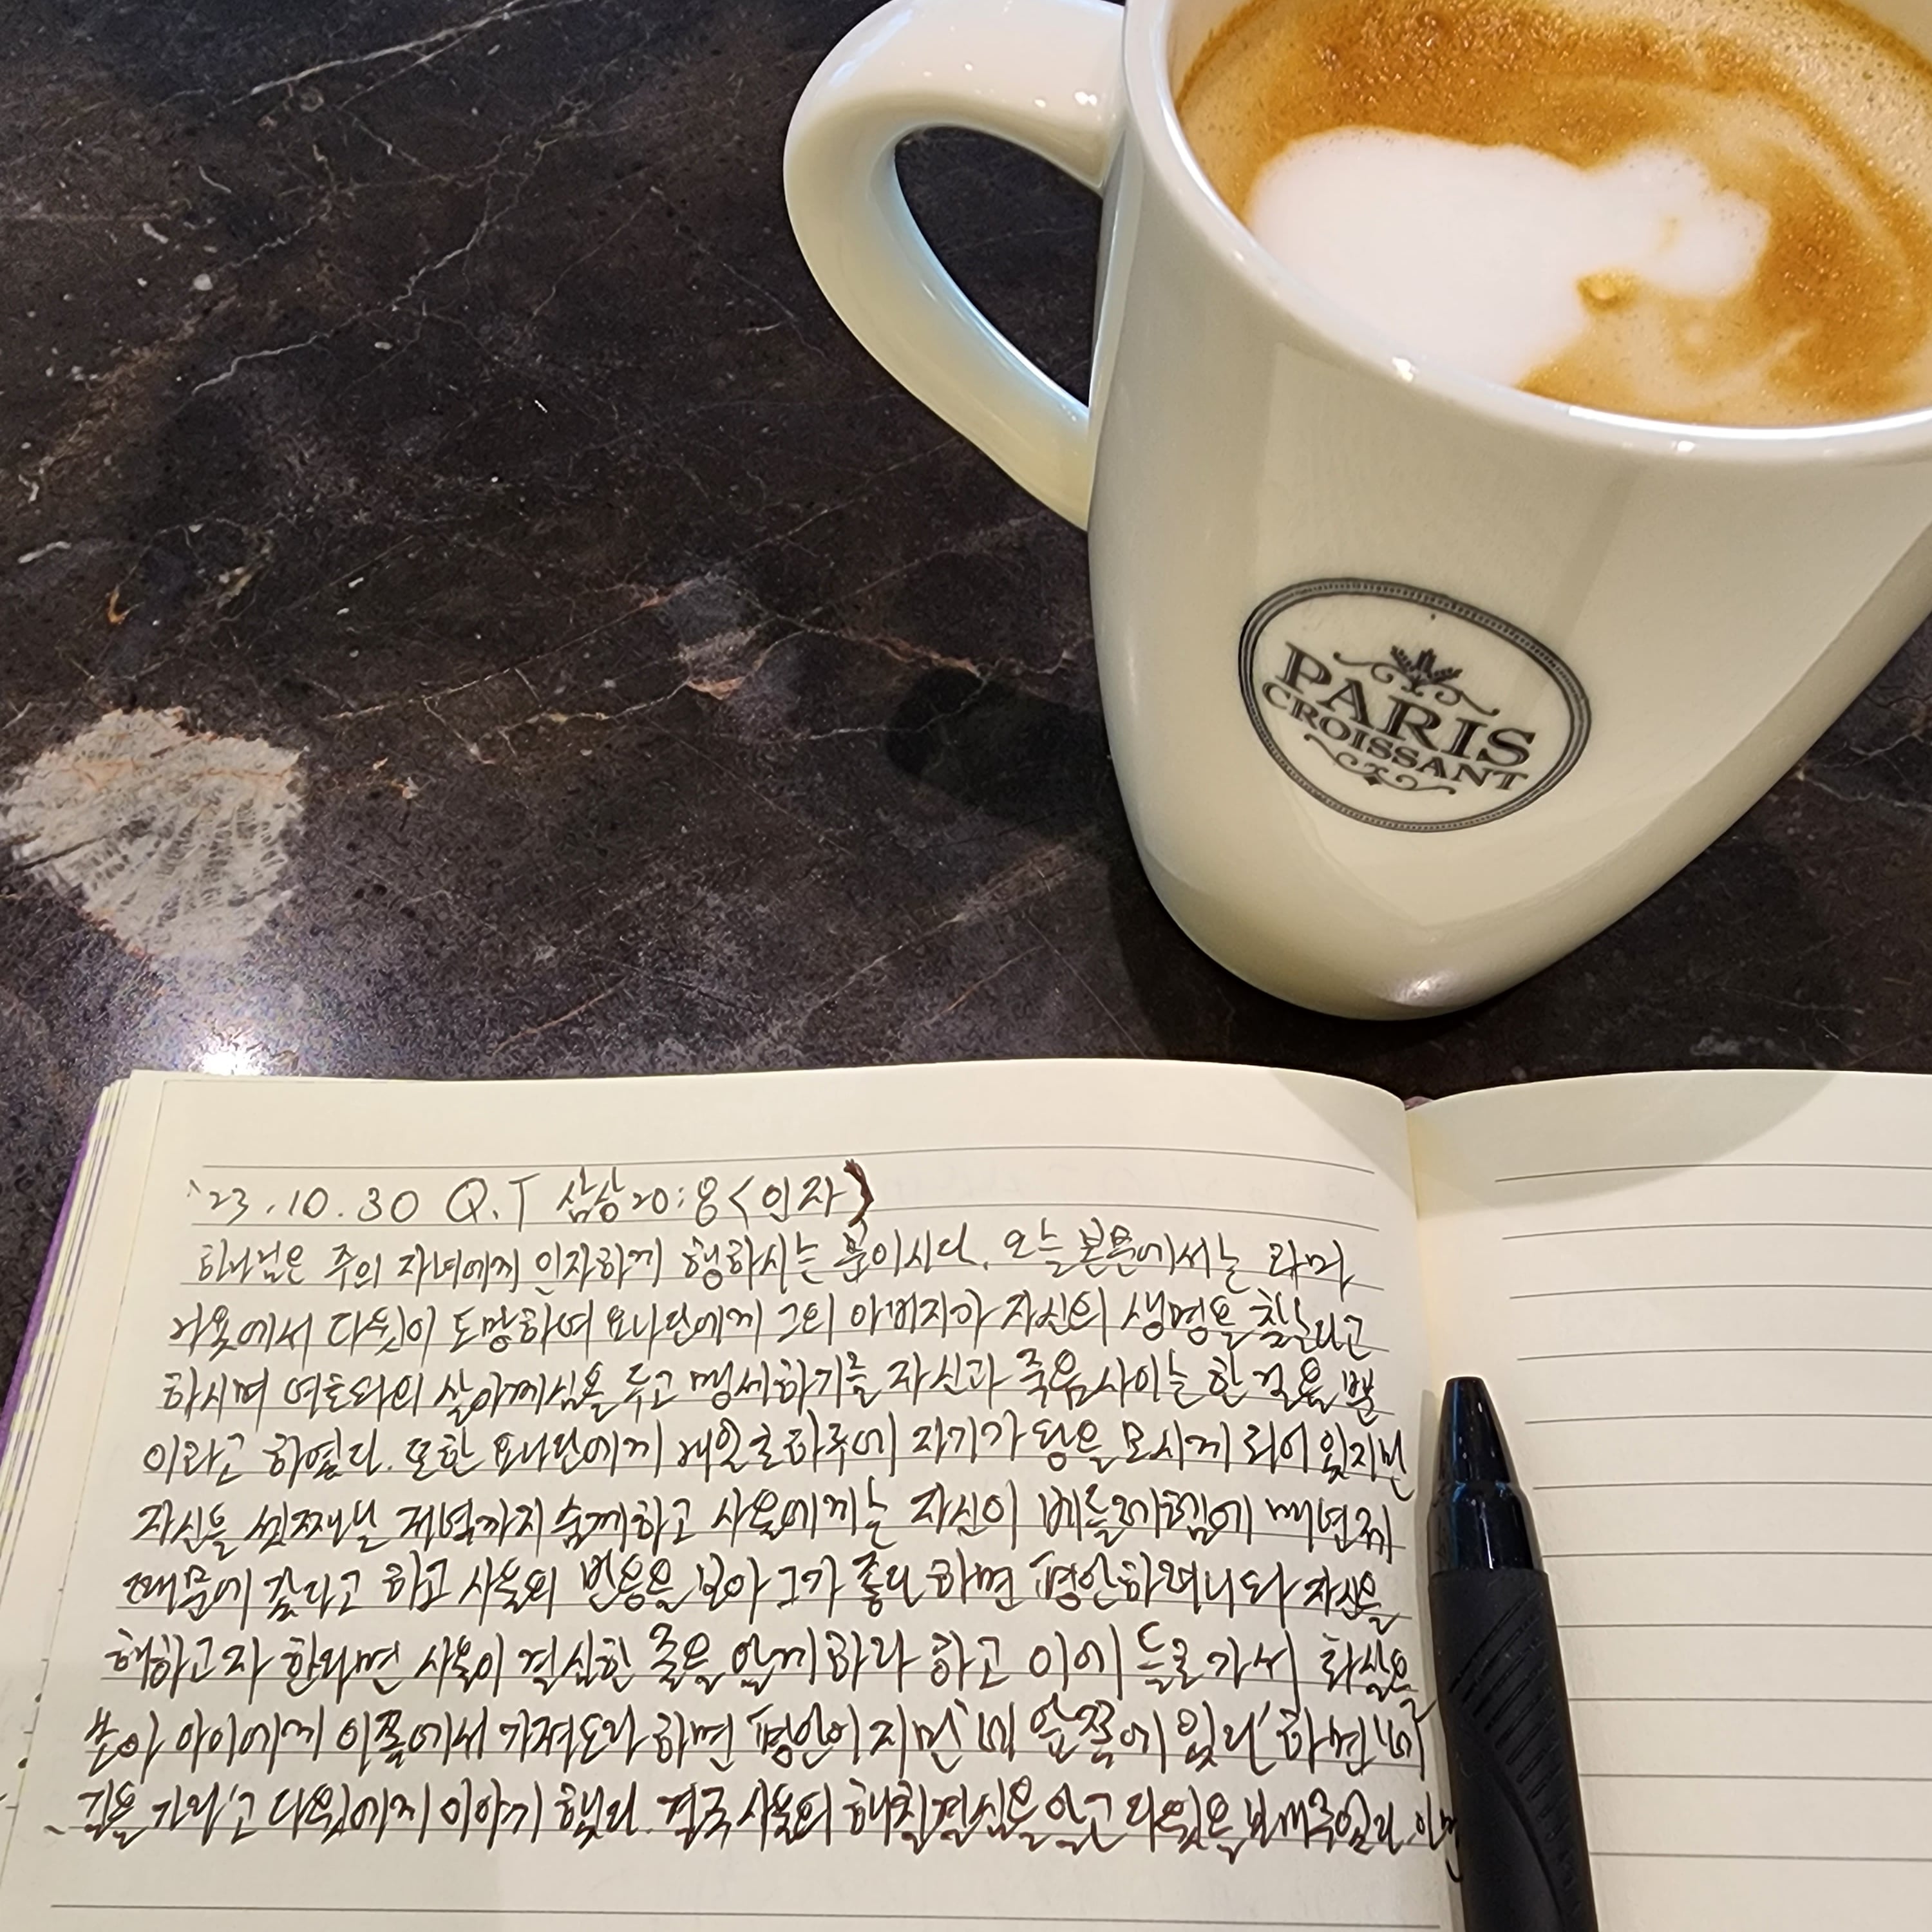 PARIS
CROISSANT
`23.10.30 Q.T 삼상20:8<인자>
하나님은 주의 자녀에게 인자하게 행하시는 분이시다. 오늘 본문에서는 라마
나욧에서 다윗이 도망하여 요나단에게 그의 아버지가 자신의 생명을 찾는다고
하시며 여호와의 살아계심을 두고 맹세하기를 자신과 죽음사이는 한 걸음 뿐
이라고 하였다. 또한 요나단에게 내일 초하루에 자기가 왕을 모시게 되어 있지만
자신을 셋째날 저녁까지 숨게하고 사울에게는 자신이 베들레헴에 매년제
때문에 갔다고 하고 사울의 반응을 보아 그가 좋다 하면 평안하려니와 자신을
해하고자 한다면 사울이 결심한 줄을 알게 하라 하고 이에 들로 가서 화살을
쏘아 아이에게 이쪽에서 가져오라 하면 평안이지만 '네 앞쪽에 있다' 하면 '네
길을 가라'고 다윗에게 이야기 했다. 결국 사울의 해칠결심을 알고 다윗을 보내주었다.